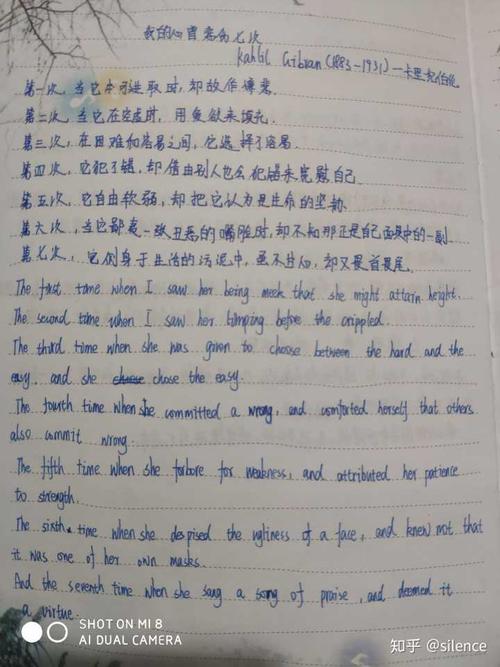 我的心曾悲伤七次
Kahlil Gibran (1883-1931) 一卡里·纪伯伦
第一次,当它本可进取时,却故作谦卑.
第二次,当它在空虚时,用爱欲来填充.
第三次,在困难和容易之间,它选择了容易.
第四次,它犯了错,却借由别人也会犯错来宽慰自己.
第五次,它自由软弱,却把它认为是生命的坚韧.
第六次,当它鄙夷一张丑恶的嘴脸时,却不知那正是自己面具中的一副.
第七次,它侧身于生活的污泥中,虽不甘心,却又畏首畏尾.
The first time when I saw her being meek that she might attain height.
The second time when I saw her limping before the crippled.
The third time when she was given to choose between the hard and the
easy, and she chose the easy.
The fourth time when she committed a wrong, and comforted herself that others
also commit wrong.
The fifth time when she forbore for weakness, and attributed her patience
to strength.
The sixth time when she despised the ugliness of a face, and knew not that
it was one of her own masks.
And the seventh time when she sang a song of praise, and deemed it
a virtue.
SHOT ON MI 8
AI DUAL CAMERA
知乎 @silence